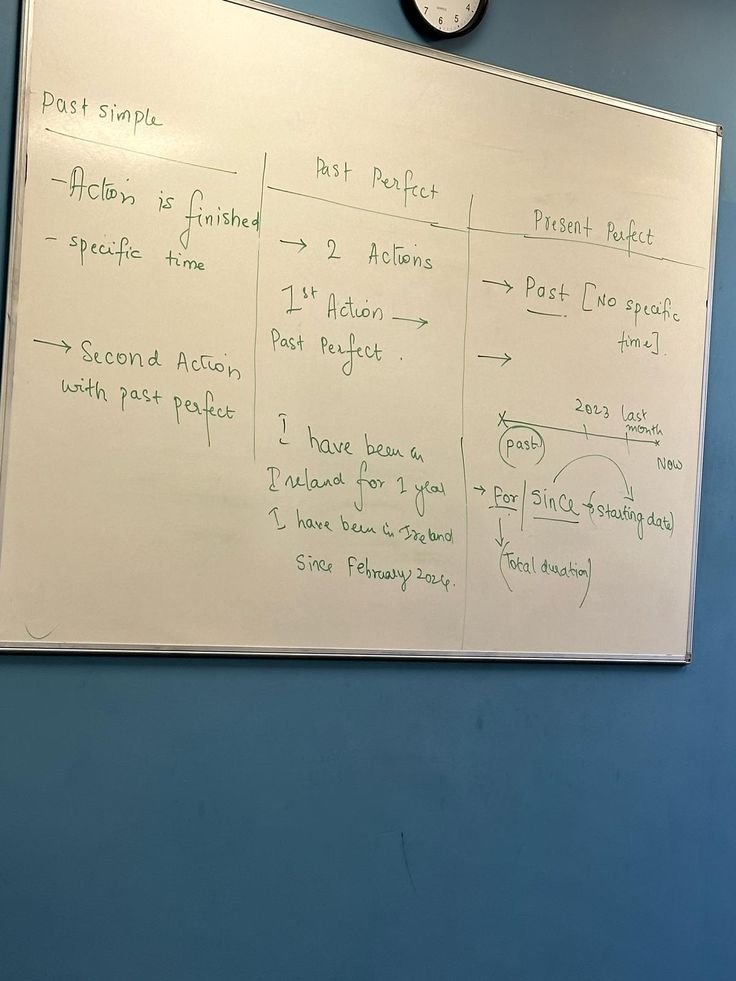 Past simple
- Action is finished
- specific time
→ Second Action
with past perfect
Past Perfect
→ 2 Actions
1st Action →
Past Perfect.
I have been in
Ireland for 1 year
I have been in Ireland
since February 2024.
Present Perfect
→ Past [No specific
time].
→
2023 last
month
(past)
Now
→ For / Since → (starting date)
(Total duration)
7 6 5 4